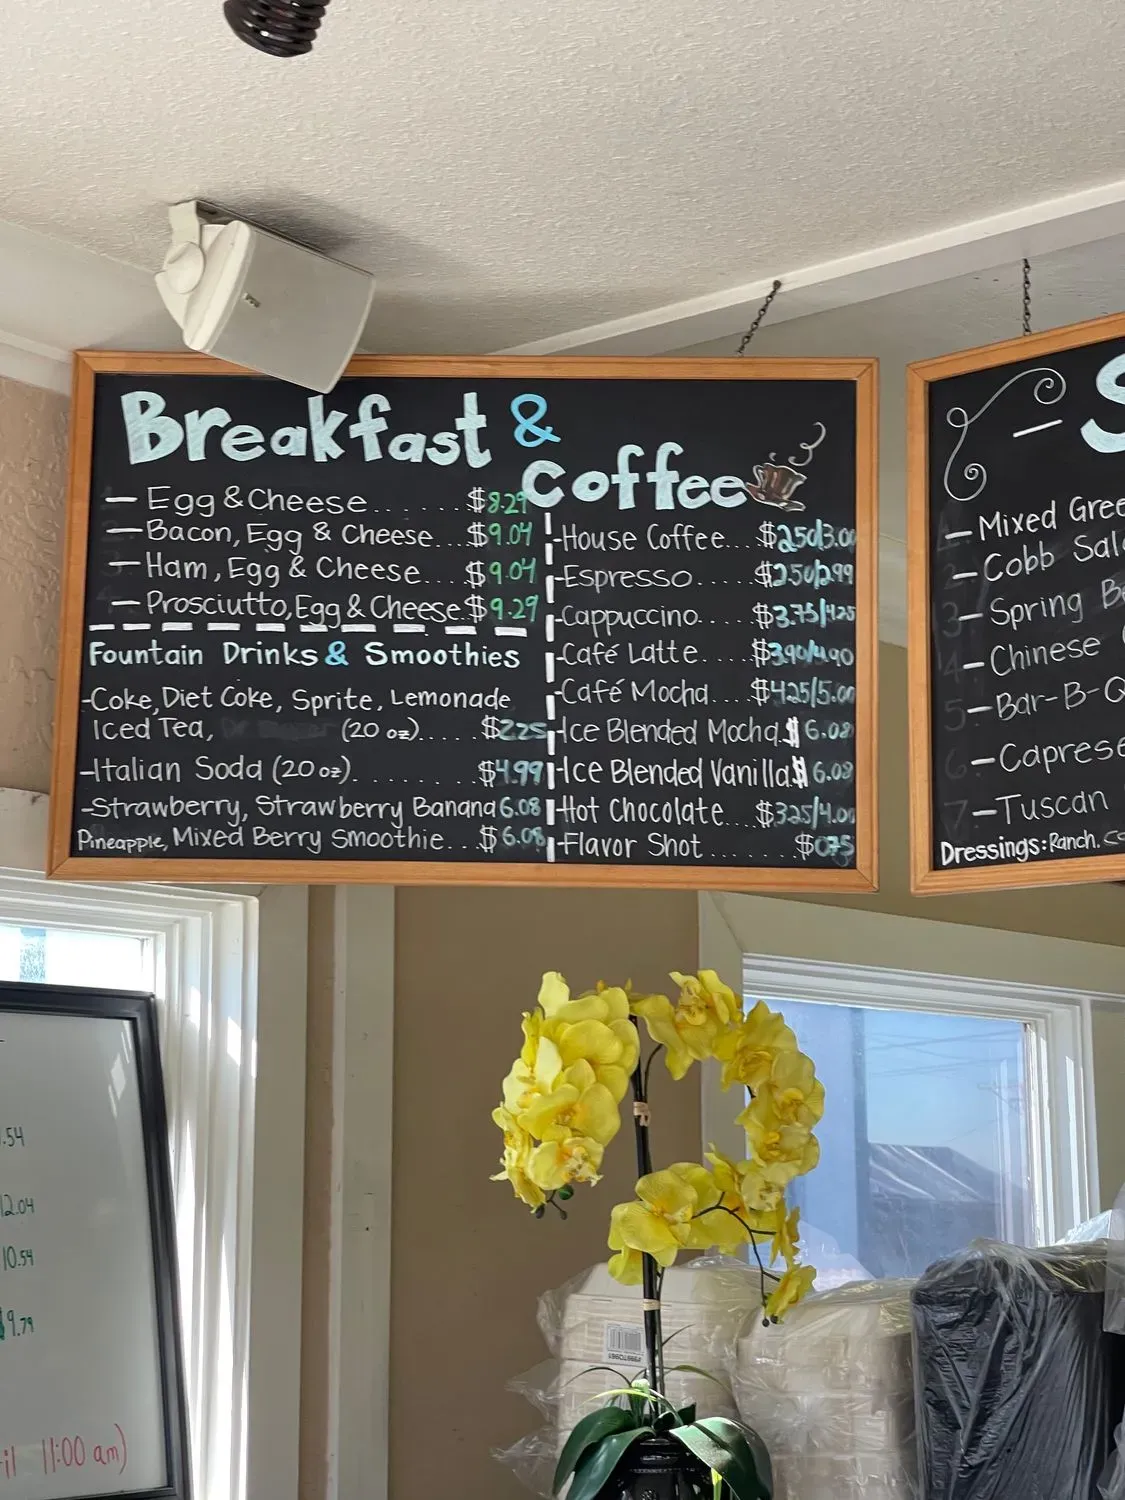 Breakfast &
Coffee
— Egg & Cheese...... $8.29
— Bacon, Egg & Cheese... $9.04
— Ham, Egg & Cheese.... $9.04
— Prosciutto, Egg & Cheese. $9.29
Fountain Drinks & Smoothies
-Coke, Diet Coke, Sprite, Lemonade
Iced Tea, (20 oz)...... $2.25
-Italian Soda (20 oz)......... $4.99
-Strawberry, Strawberry Banana 6.08
Pineapple, Mixed Berry Smoothie... $6.08
-House Coffee... $2.50/3.00
-Espresso..... $2.50/2.99
-Cappuccino..... $3.75/4.25
-Café Latte.... $3.90/4.90
-Café Mocha.... $4.25/5.00
-Ice Blended Mocha. $6.08
-Ice Blended Vanilla $6.08
-Hot Chocolate... $3.25/4.00
-Flavor Shot....... $0.75
— Mixed
— Cobb
— Spring
— Chinese
— Bar-B-Q
— Caprese
— Tuscan
Dressings: Ranch.
.54
12.04
10.54
$9.79
11:00 am)